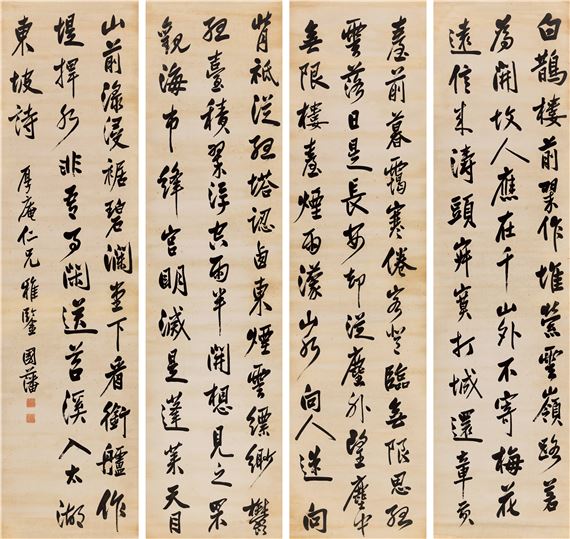 白鵲樓前翠作堆縈雲嶺路若
為開故人應在千山外不寄梅花
遠信来濤頭寂寞打城還章貢
臺前暮靄寒倦客登臨無限思孤
雲落日是長安却從塵外望塵中
無限樓臺煙雨濛山水向人迷向
背祗從孤塔認西東煙雲縹緲鬱
孤臺積翠浮空雨半開想見之罘
觀海市絳宫明滅是蓬萊天目
山前淥浸裾碧瀾堂下看銜艫作
堤捍水非吾事閑送苕溪入太湖
東坡詩 厚庵仁兄雅鑒 國藩